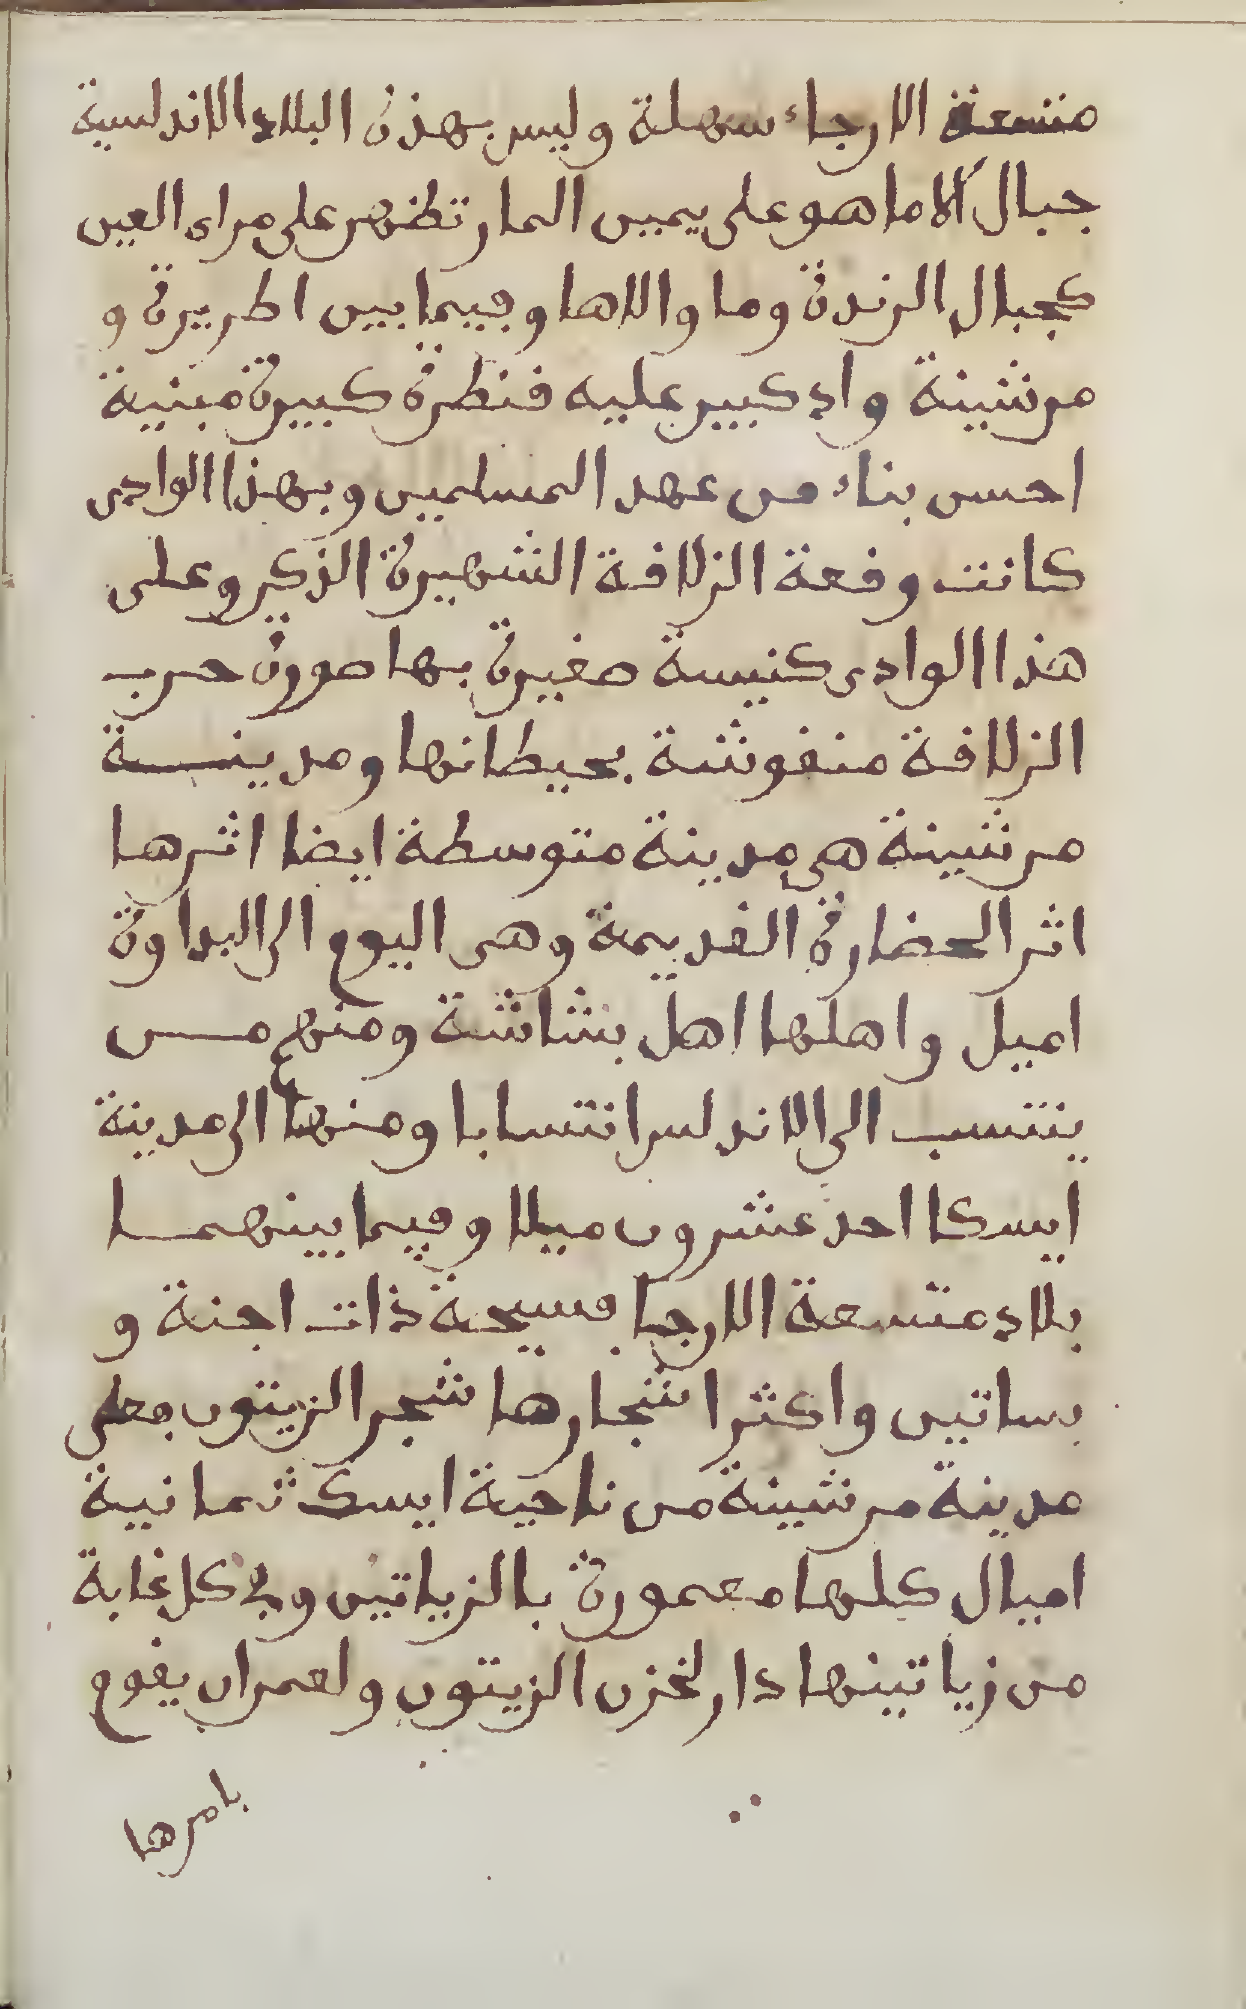 متسعة الارجاء سهلة وليس بهذه البلاد الاندلسية
جبال الا ما هو على يمين المار تظهر على مراى العين
كجبال الرندة وما والاها وفيما بين اطريرة و
مرشينة واد كبير عليه قنطرة كبيرة مبنية
احسن بناء من عهد المسلمين وبهذا الوادى
كانت وقعة الزلاقة الشهيرة الذكر وعلى
هذا الوادى كنيسة صغيرة بها صورة حرب
الزلاقة منقوشة بحيطانها ومدينة
مرشينة هي مدينة متوسطة ايضا اثرها
اثر الحضارة القديمة وهى اليوم الى البداوة
اميل واهلها اهل بشاشة ومنهم من
ينتسب الى الاندلس انتسابا ومنها الى مدينة
ايسكا احد عشرون ميلا وفيما بينهما
بلاد متسعة الارجا فسيحة ذات اجنة و
بساتين واكثر اشجارها شجر الزيتون فعلى
مدينة مرشينة من ناحية ايسك ثمانية
اميال كلها معمورة بالزياتين وفى كل غابة
من زياتينها دار لخزن الزيتون ولعمران يقوم
بامرها